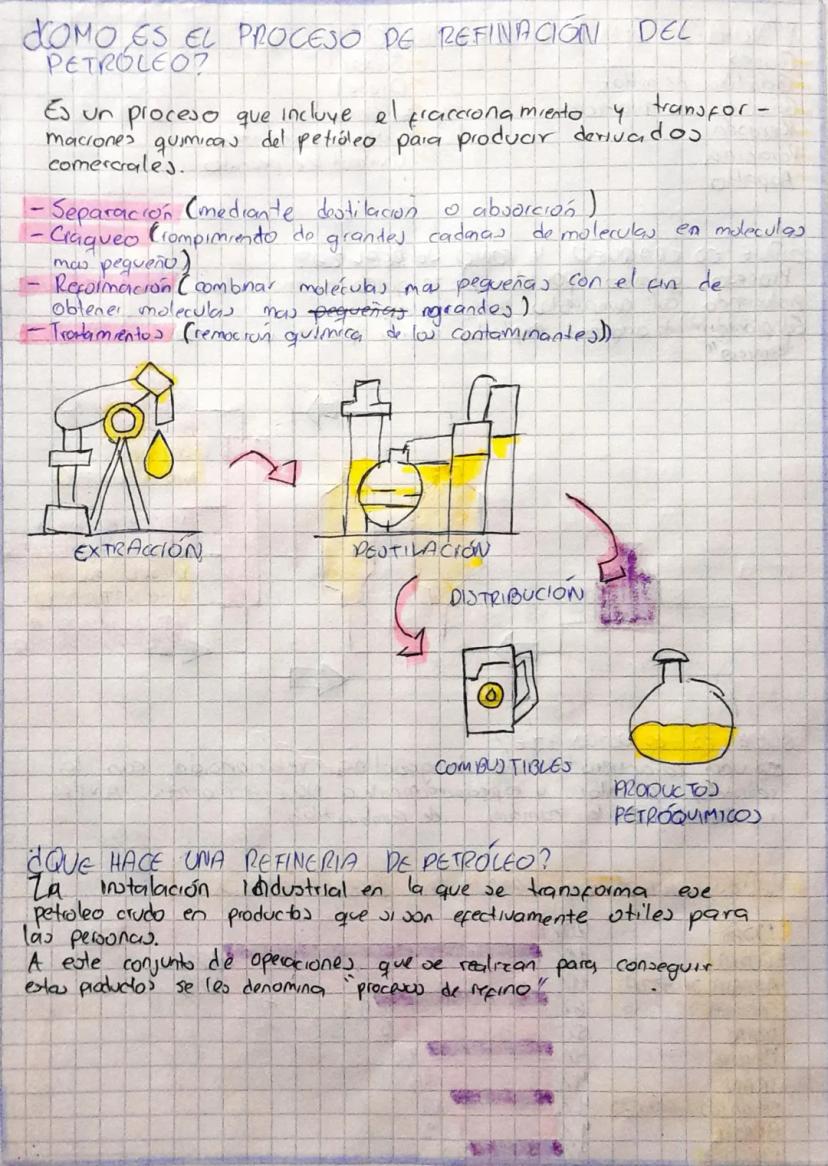 ¿COMO ES EL PROCESO DE REFINACIÓN DEL
PETRÓLEO?
Es un proceso que incluye el fraccionamiento y transfor-
maciones quimicas del petróleo para producir derivados
comerciales.
- Separación (mediante destilación o absorción)
- Craqueo (rompimiento de grandes cadenas de moleculas en moleculas
mas pequeño)
- Reformación (combinar moléculas mas pequeñas con el fin de
obtener moleculas mas pequeñas ngrandes)
- Tratamientos (remoción química de los contaminantes))
EXTRACCIÓN
DESTILACIÓN
DISTRIBUCIÓN
COMBUSTIBLES
PRODUCTOS
PETRÓQUIMICOS
¿QUE HACE UNA REFINERIA DE PETRÓLEO?
La instalación industrial en la que se transforma ese
petroleo crudo en productos que si son efectivamente utiles para
las personas.
A este conjunto de operaciones que se realizan para conseguir
estos productos se les denomina "procesos de refino"